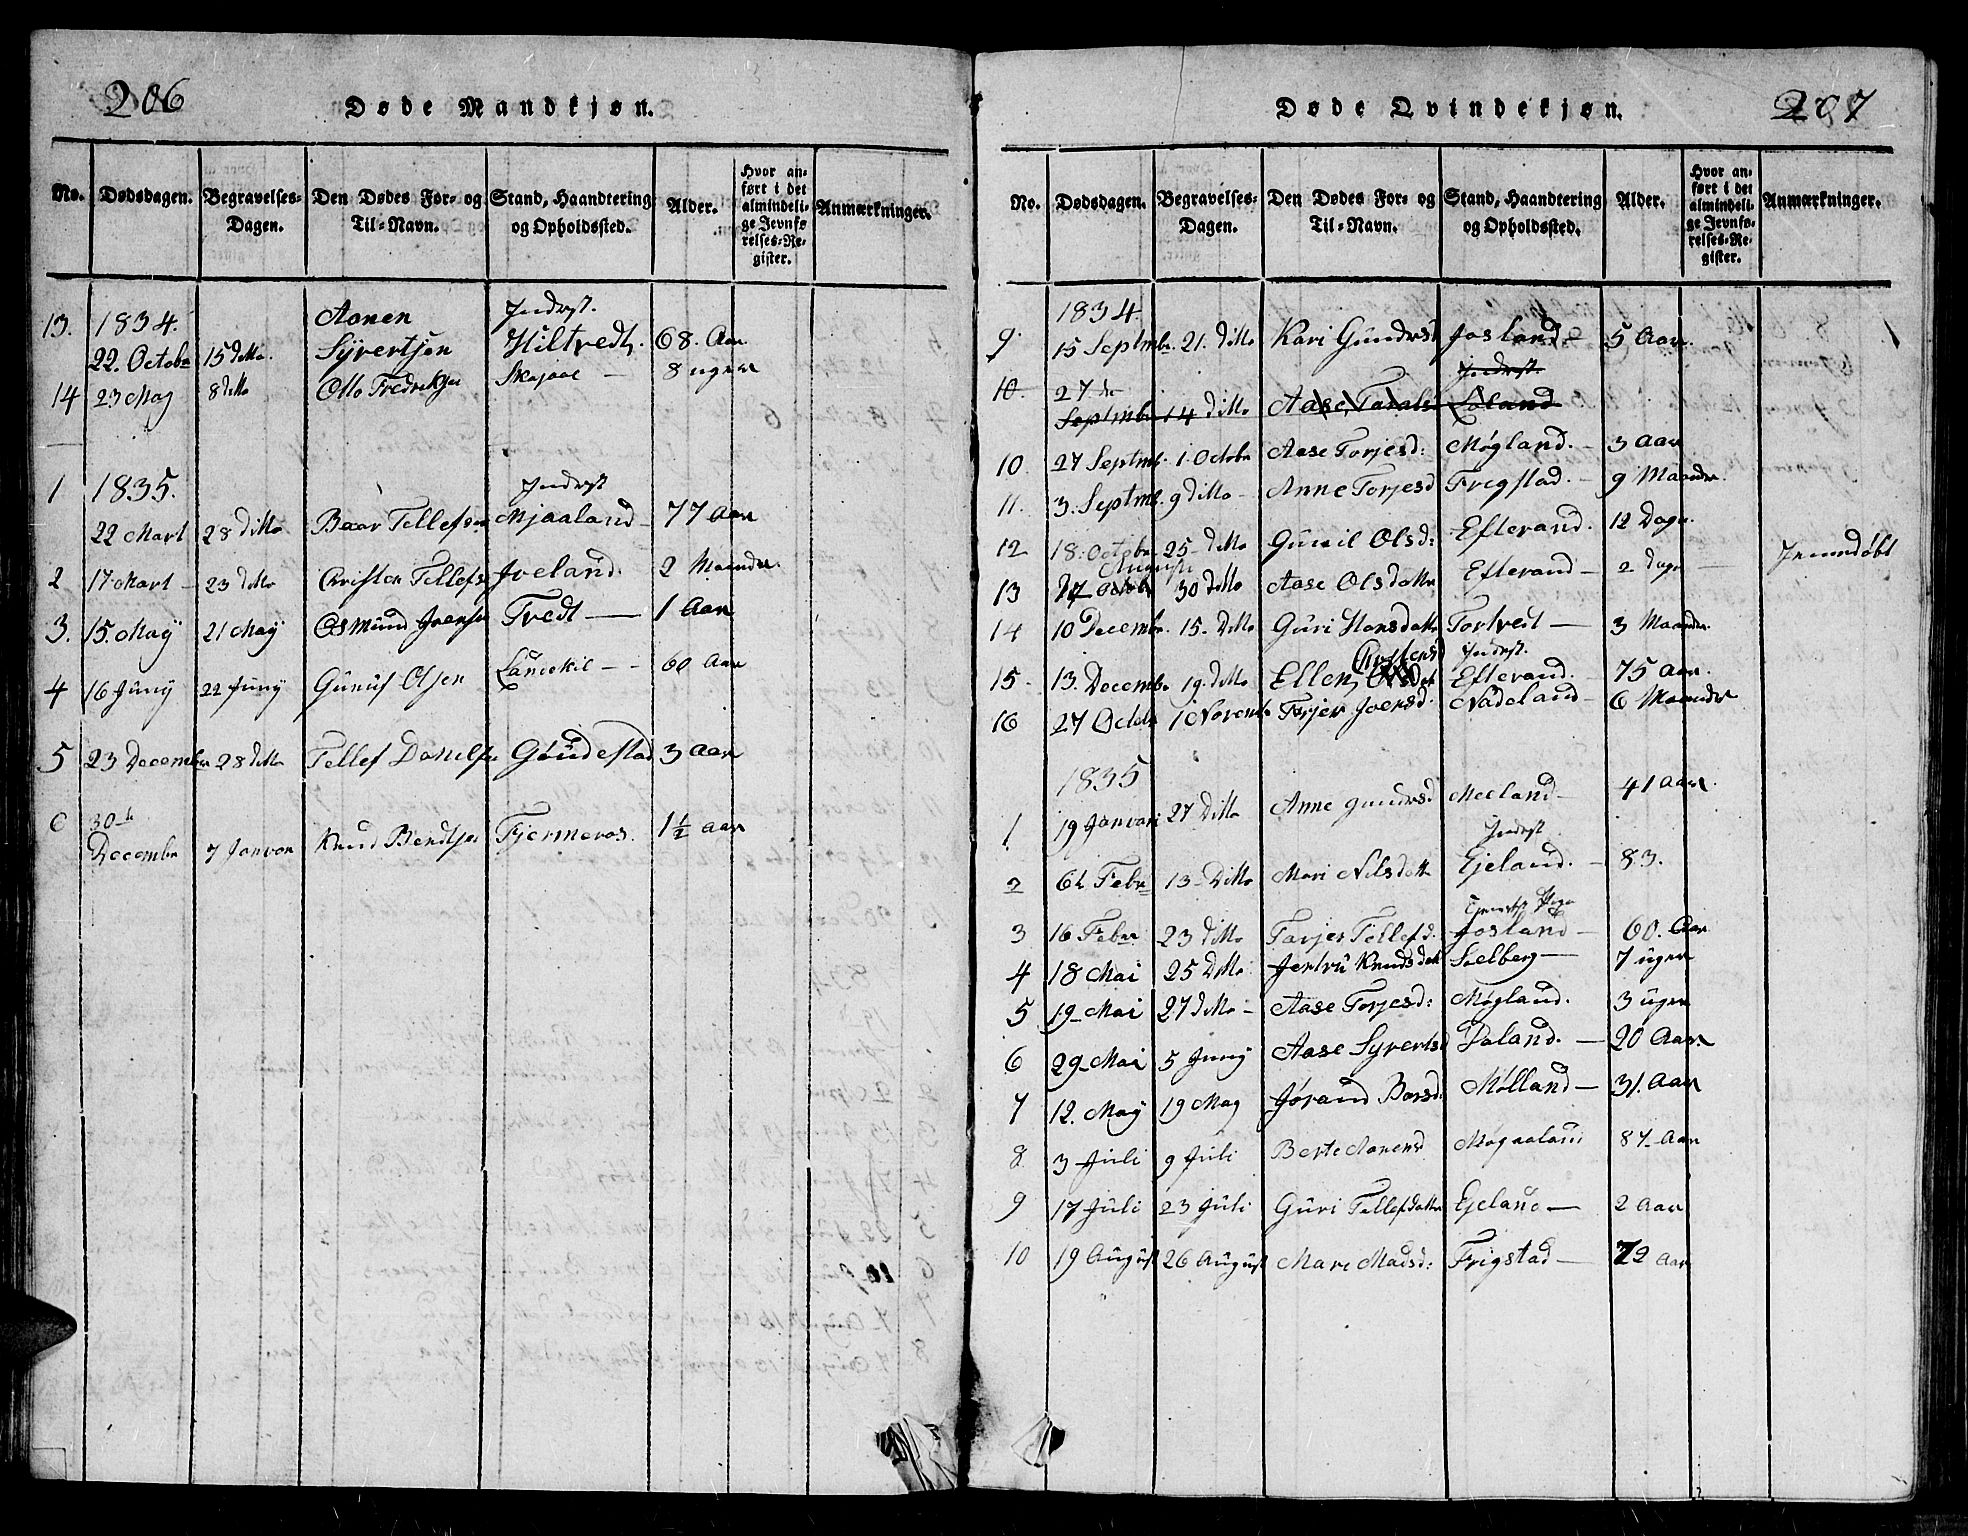 206
Døde Mandkjøn.
No. Dødsdagen. Begravelses-Dagen. Den Dødes For- og Til-Navn. Stand, Haandtering og Opholdssted. Alder. Hvor anført i det almindelige Jevnførelses-Register. Anmærkninger.
13. 1834. Aanen Inderst.
22. Octobr 15 ditto Syvertsen Hiltvedt. 68. Aar
14 23 May 8 ditto Otto Fredriksen 8 uger
1 1835. Inderst
22 Mart 28 ditto Baar Tellefsen Mjaaland 77 Aar
2 17 Mart 23 ditto Christen Tellefs Joeland. 2 Maander.
3. 15. May 21 May Osmund Joensen Tvedt 1 Aar
4 16 Juny 22 Juny Gunuf Olsen 60 Aar
5 23 Decembr 28 ditto Tellef Danielsen Goudestad 3 Aar
6 30te
Decembr 7 Januar Knud Bendtsen Fjermeros. 1½ Aar
207
Døde Qvindekjøn.
No. Dødsdagen. Begravelses-Dagen. Den Dødes For- og Til-Navn. Stand, Haandtering og Opholdssted. Alder. Hvor anført i det almindelige Jevnførelses-Register. Anmærkninger.
1834.
9 15 Septmbr. 21. ditto Kari Gundersd Josland 5 Aar.
10. 27de Inderst.
Septmbr 14 ditto Aase Taralsd
10. 27 Septmb. 1 Octobr Aase Torjesd: Møgland. 3 Aar
11. 3. Septmb. 9 ditto Anne Torjesd Frigstad. 9 Maander.
12 18. Octobr 25 ditto Gunil Olsd: Efterand. 12 Dage.
August
13 30 ditto Aase Olsdatter Efterand 2 Dage Jemmdøbt
14 10 Decembr. 15. Ditto Guri Hansdatter Tortvedt 3 Maander.
Christensd Inderst.
15. 13. Decembr 19. ditto Ellen Efterand. 75 Aar.
16 27 Octobr 1 Novembr Torjer Joensd. Nadeland 6 Maander
1835
1 19 Januari 27 Ditto Anne Gundersd Meeland 41 Aar.
Inderst
2 6te Febr 13 Ditto Mari Nilsdatter Ejeland. 83.
3 16 Febr 23 ditto Torjer Tellefsd. Josland 60. Aar
4 18 Mai 25 Ditto Jertru Knudsdatt Solberg 7 uger
5 19 Mai 27 ditto Aase Torjesd: Møgland. 3 uger
6 29 Mai 5 Juny Aase Syvertsd Daland. 20 Aar.
7 12. May 19 May Jørand Borsd: Mølland 31. Aar
8 3 Juli 9 Juli Berte Aanensd Møgaaland 87 Aar
9 17 Juli 23 Juli Guri Tellefsdatter Ejeland 2 Aar
10 19 August 26 August Mari Madsd: Frigstad 72 Aar